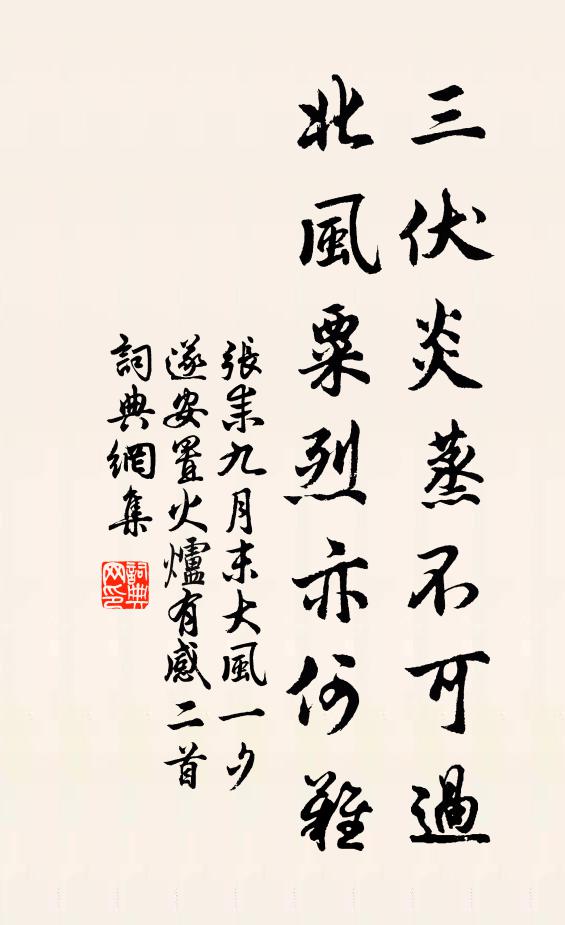 三伏炎蒸不可過
北風粟烈亦何難
張耒九月末大風一夕
遂安置火爐有感二首
詞典網集
詞典网印